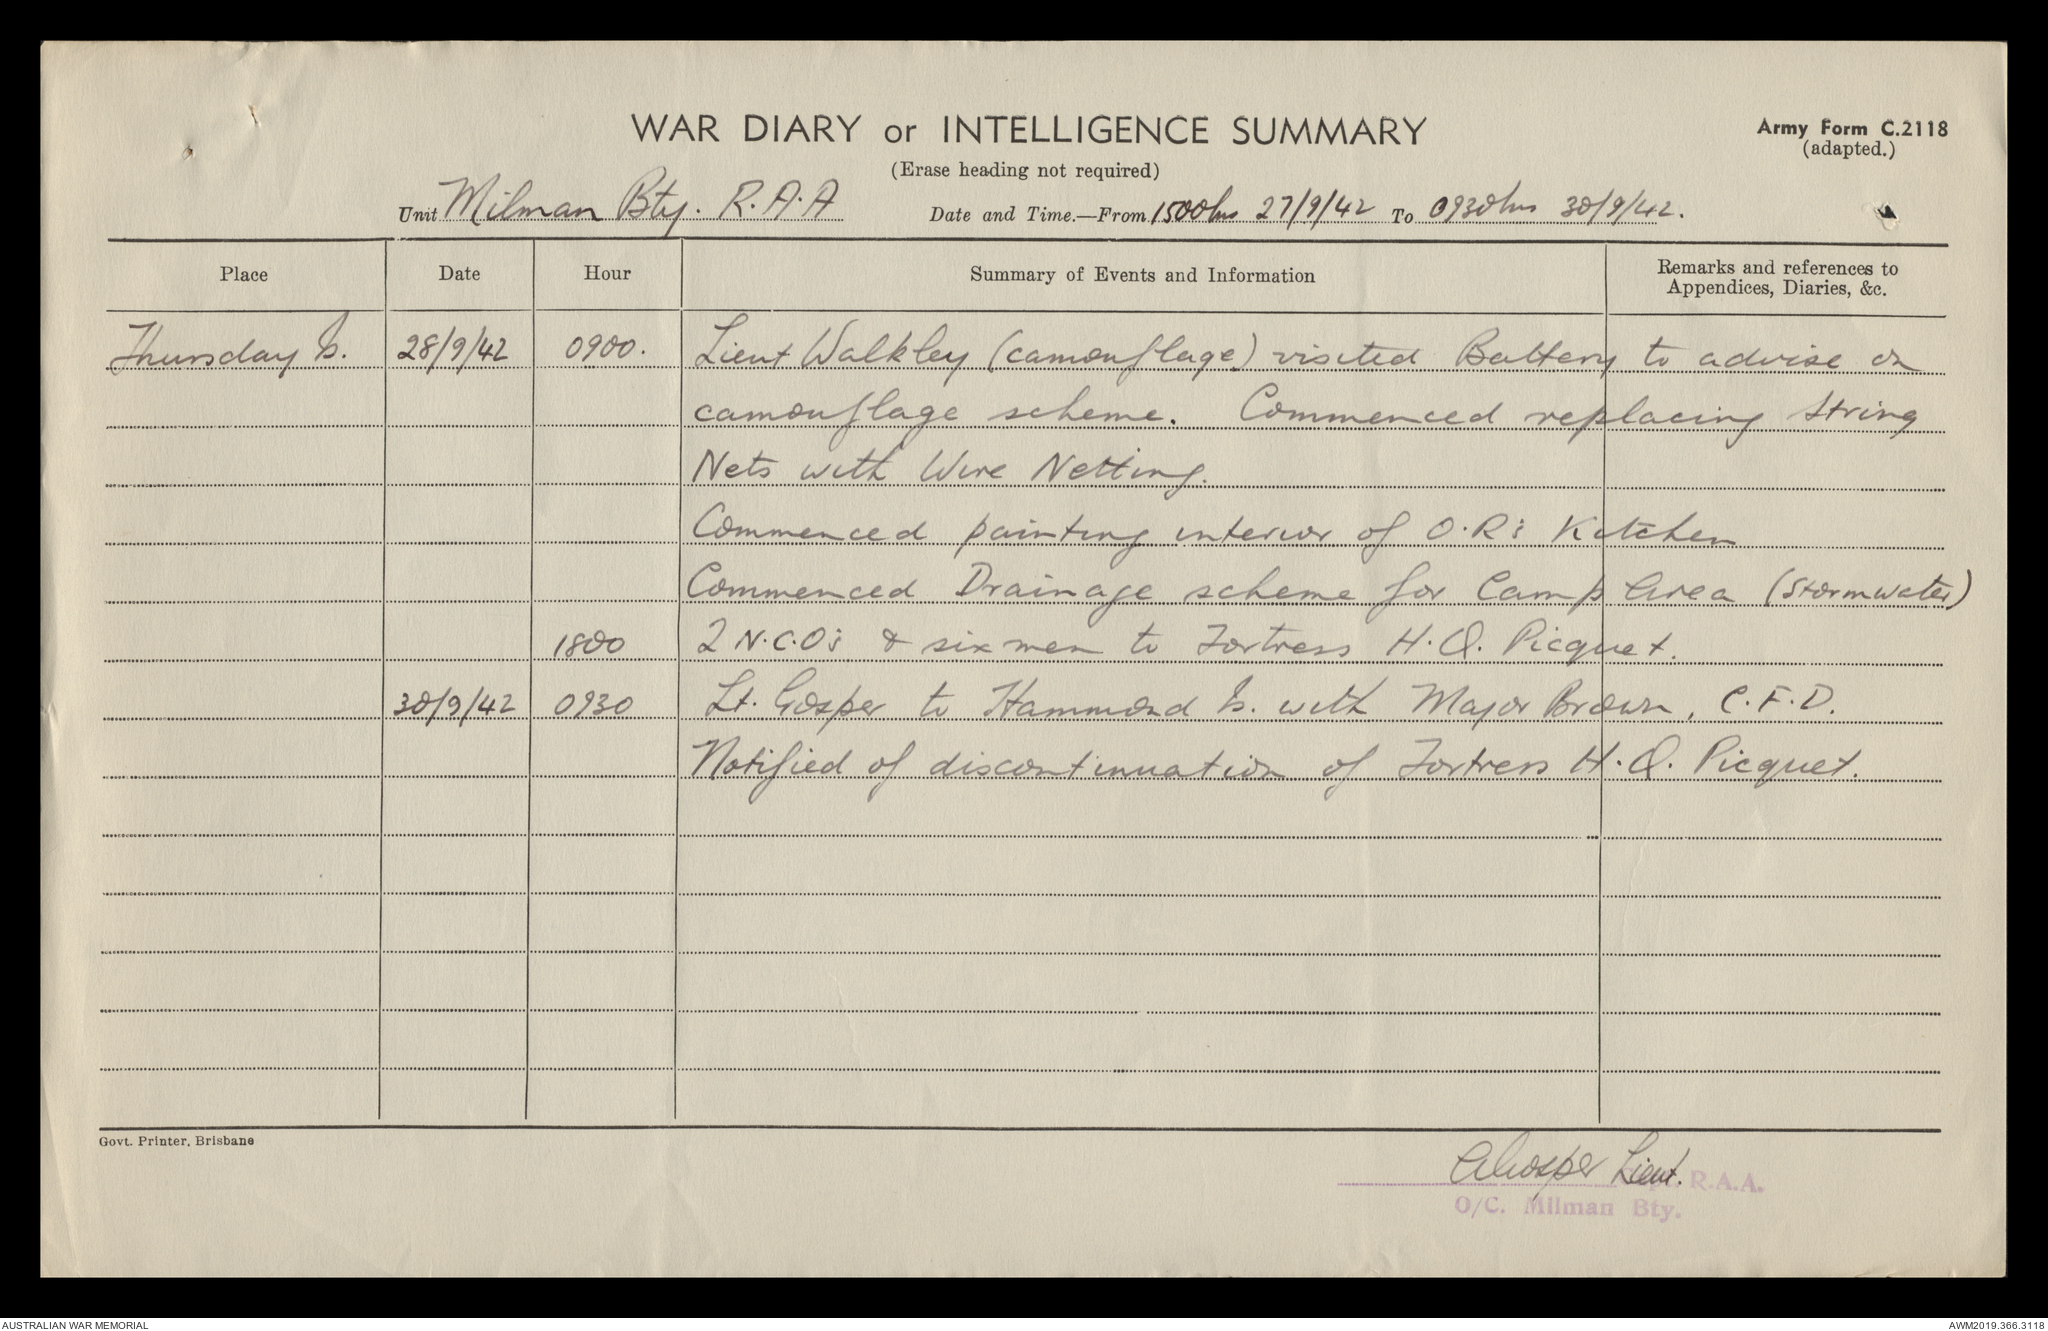 WAR DIARY or INTELLIGENCE SUMMARY
Army Form C.2118
(adapted.)
(Erase heading not required)
Unit Milman Bty. R.A.A Date and Time.—From 1500hrs 27/9/42 To 0930hrs 30/9/42.
Place Date Hour Summary of Events and Information Remarks and references to Appendices, Diaries, &c.
Thursday Is. 28/9/42 0900. Lieut Walkley (camouflage) visited Battery to advise on
camouflage scheme. Commenced replacing string
Nets with Wire Netting.
Commenced painting interior of O.R's Kitchen
Commenced Drainage scheme for Camp Area (Stormwater)
1800 2 N.C.O's & six men to Fortress H.Q. Picquet.
30/9/42 0930 Lt. Gosper to Hammond Is. with Major Brown, C.F.D.
Notified of discontinuation of Fortress H.Q. Picquet.
Govt. Printer, Brisbane
Gosper Lieut. R.A.A.
O/C. Milman Bty.
AUSTRALIAN WAR MEMORIAL
AWM2019.366.3118